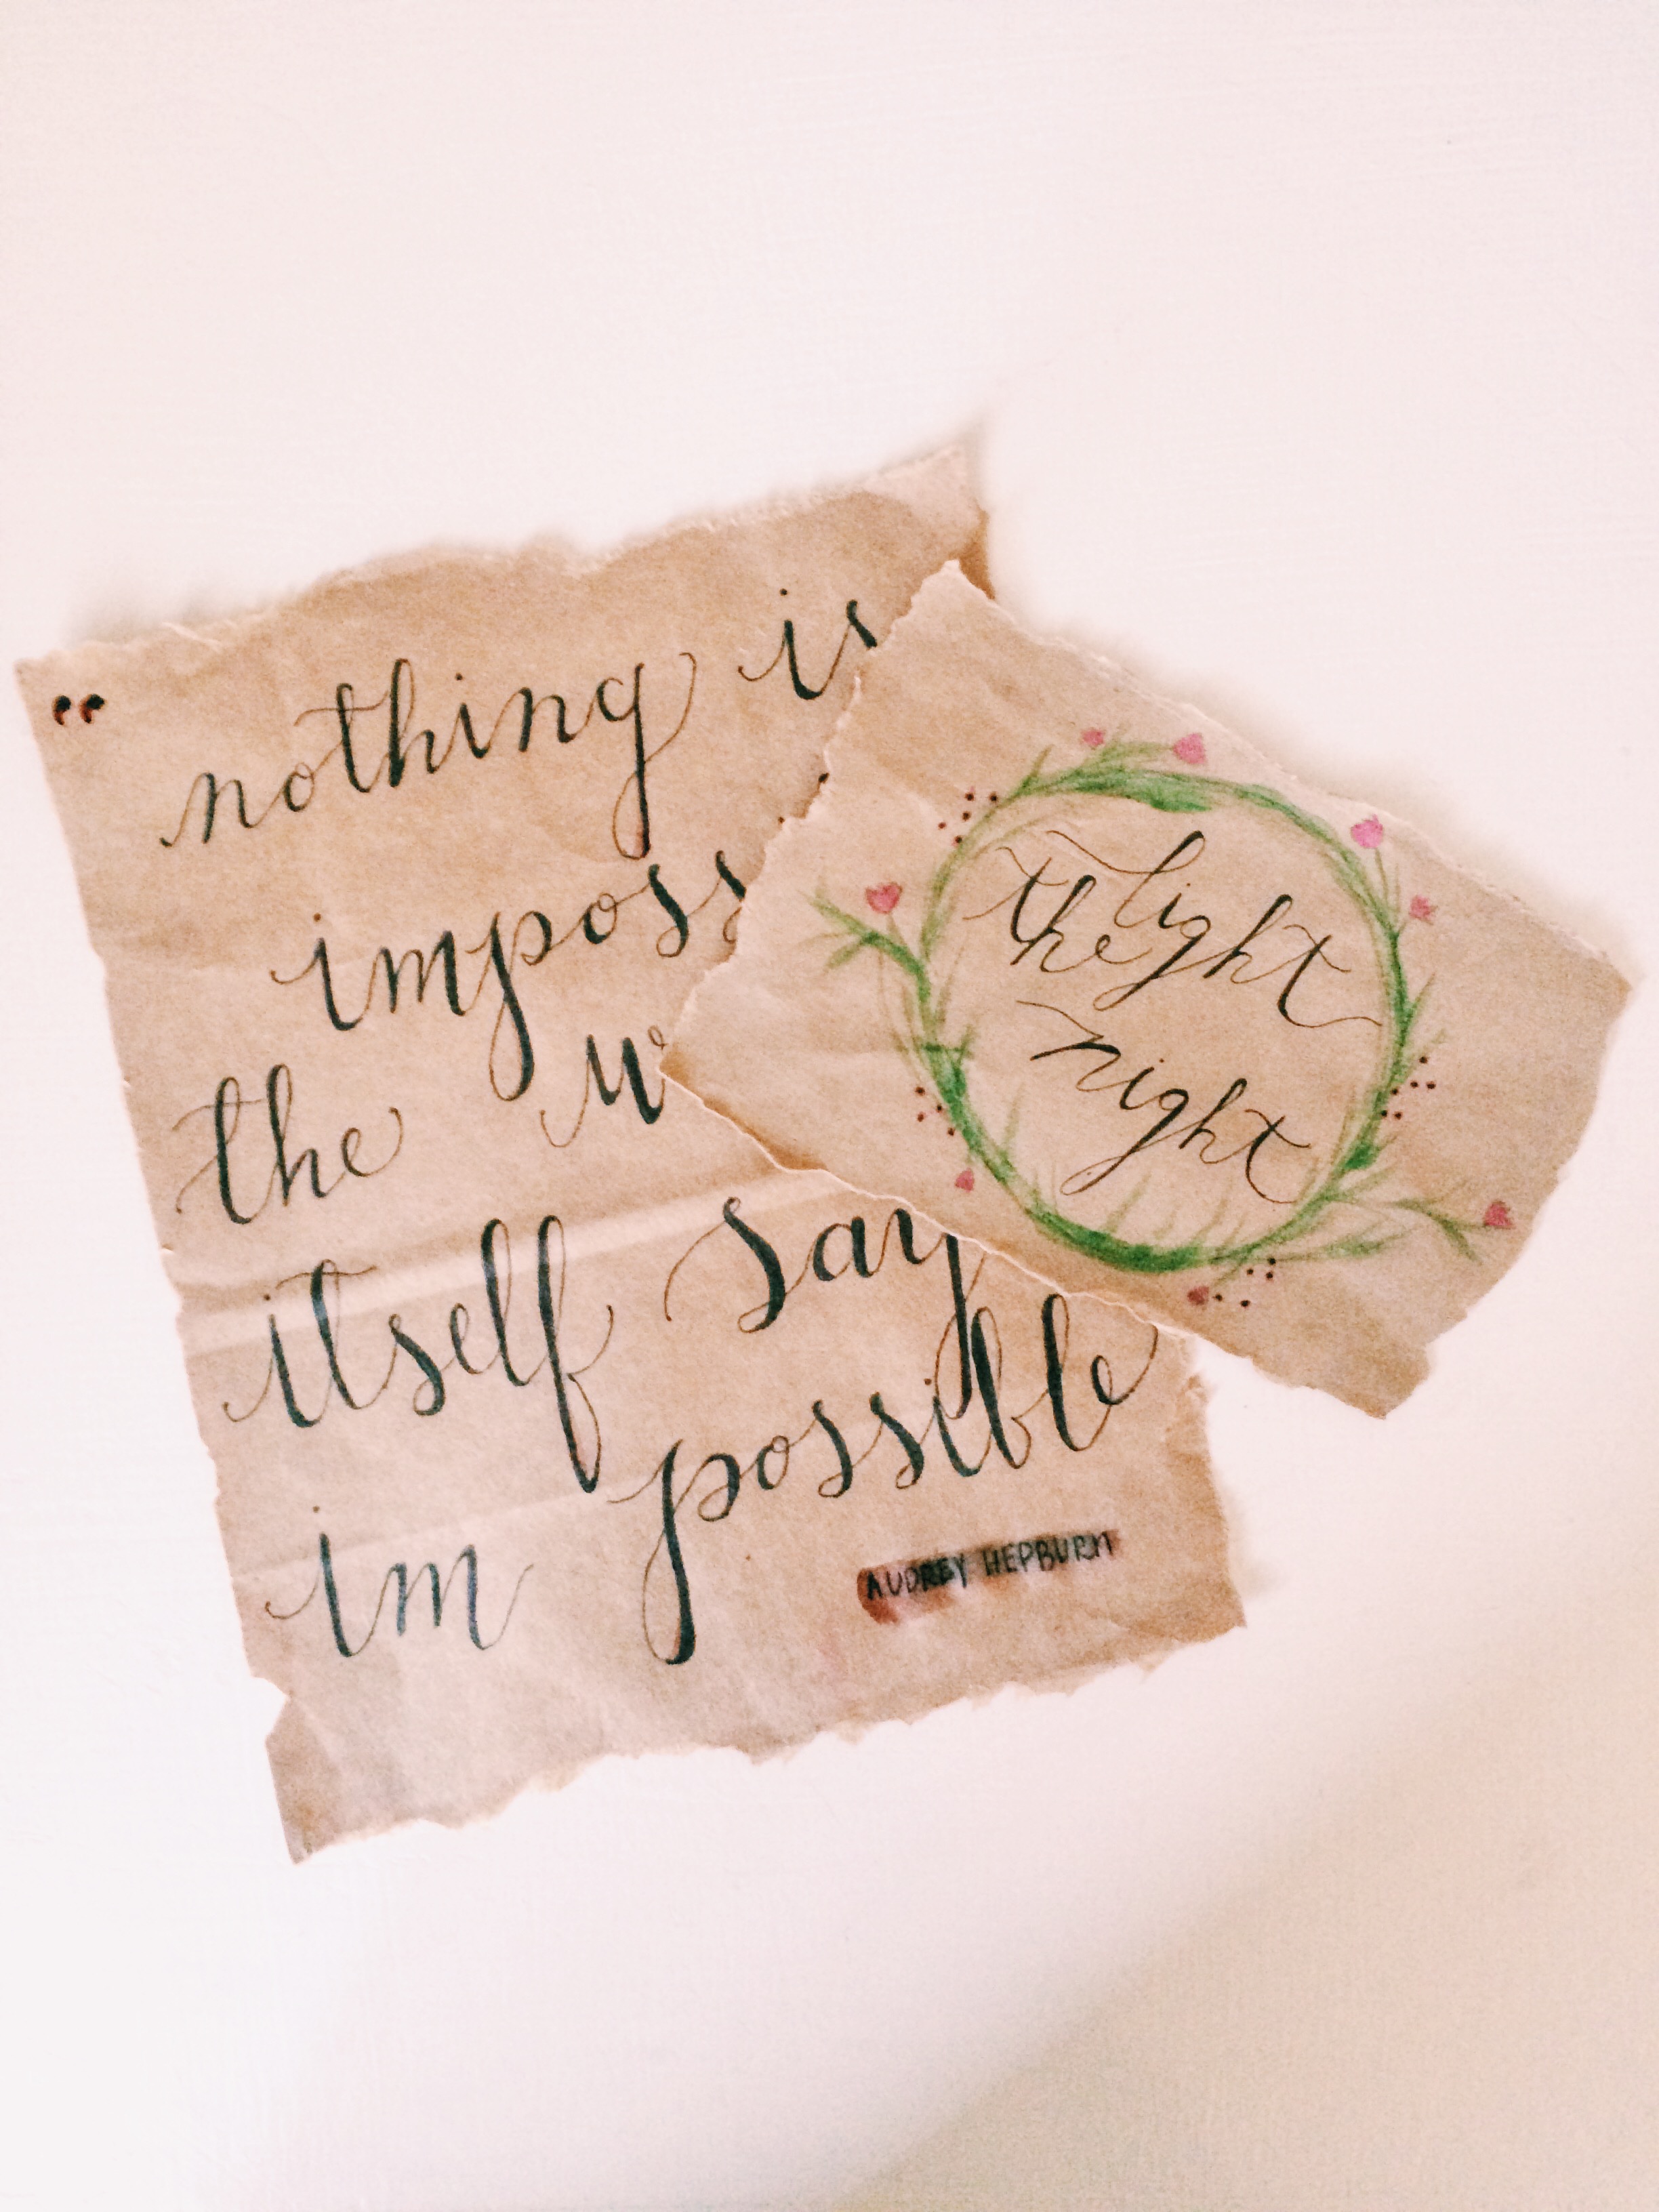 “ nothing is
imposs
the w
itself say
im possible
AUDREY HEPBURN
light
the
night